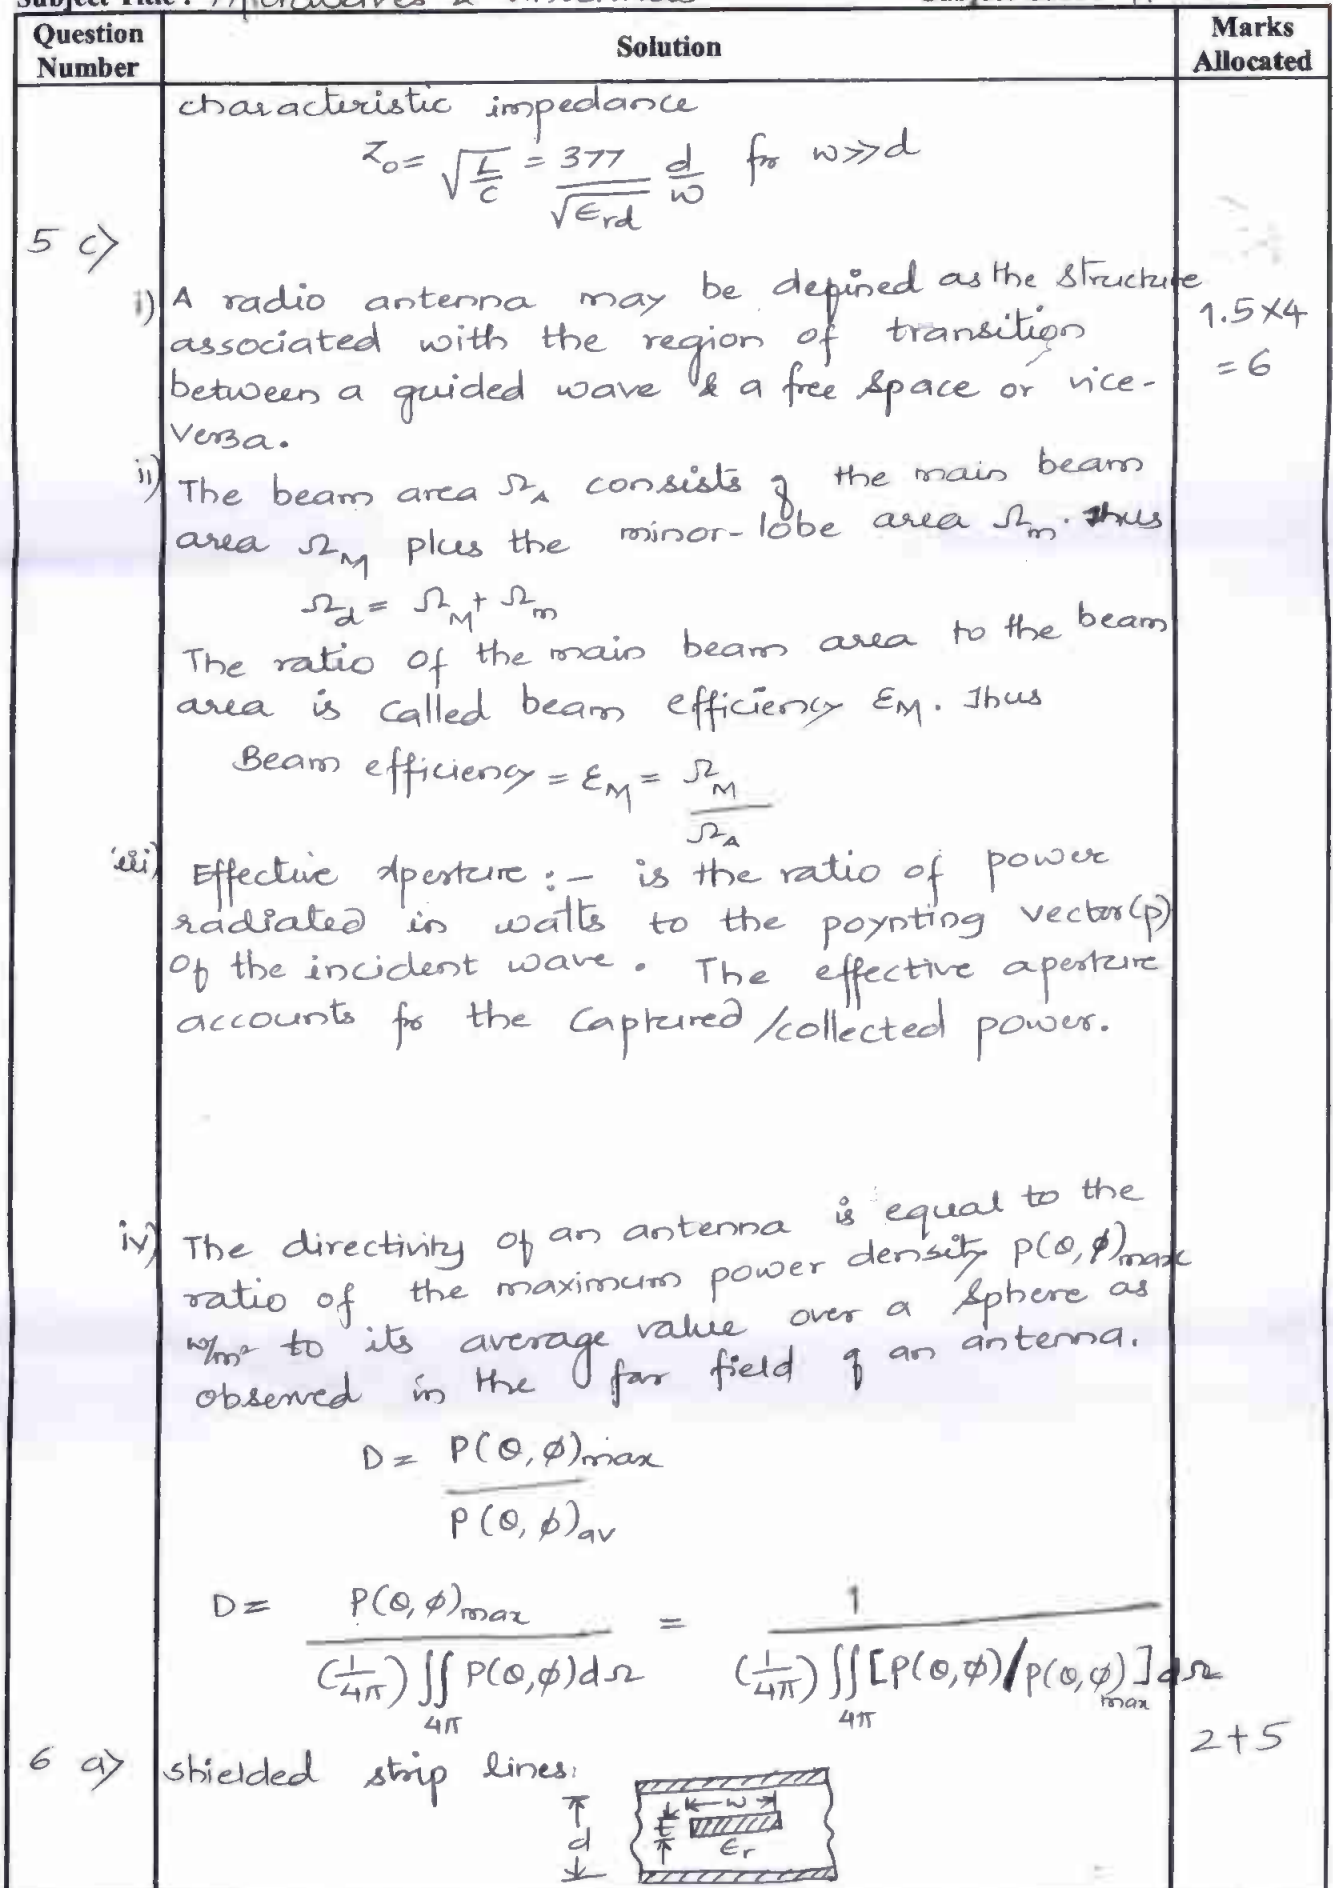 Microwaves &
Question Number
Solution
Marks Allocated
characteristic impedance
Z₀ = √(L/C) = 377/√ϵrd d/w for w>>d
5 c)
i) A radio antenna may be defined as the structure
associated with the region of transition
between a guided wave & a free space or vice-
versa.
1.5×4
= 6
ii) The beam area Ω_A consists of the main beam
area Ω_M plus the minor-lobe area Ω_m. Thus
Ω_d = Ω_M + Ω_m
The ratio of the main beam area to the beam
area is called beam efficiency ε_M. Thus
Beam efficiency = ε_M = Ω_M/Ω_A
iii) Effective Aperture :- is the ratio of power
radiated in watts to the poynting vector(p)
of the incident wave. The effective aperture
accounts for the captured/collected power.
iv) The directivity of an antenna is equal to the
ratio of the maximum power density P(θ,φ)max
w/m² to its average value over a sphere as
observed in the far field of an antenna.
D = P(θ,φ)max / P(θ,φ)av
D = P(θ,φ)max / (1/4π) ∬4π P(θ,φ)dΩ = 1 / (1/4π) ∬4π [P(θ,φ)/P(θ,φ)max] dΩ
2+5
6 a) shielded strip lines:
w
t
d
ϵr